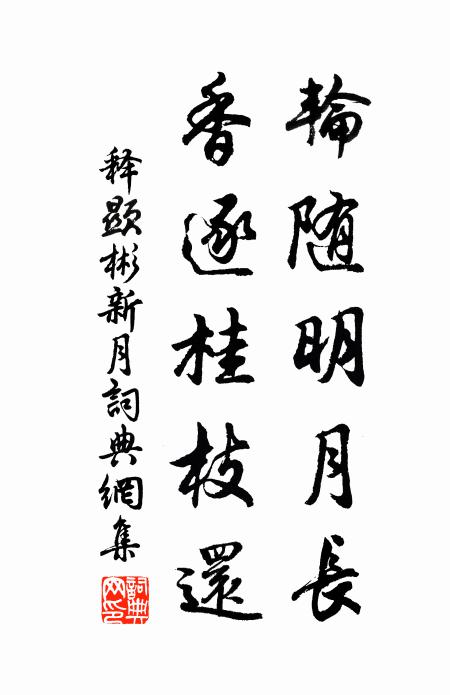 輪随明月長
香逐桂枝還
释顯彬新月詞典網集
詞典网印